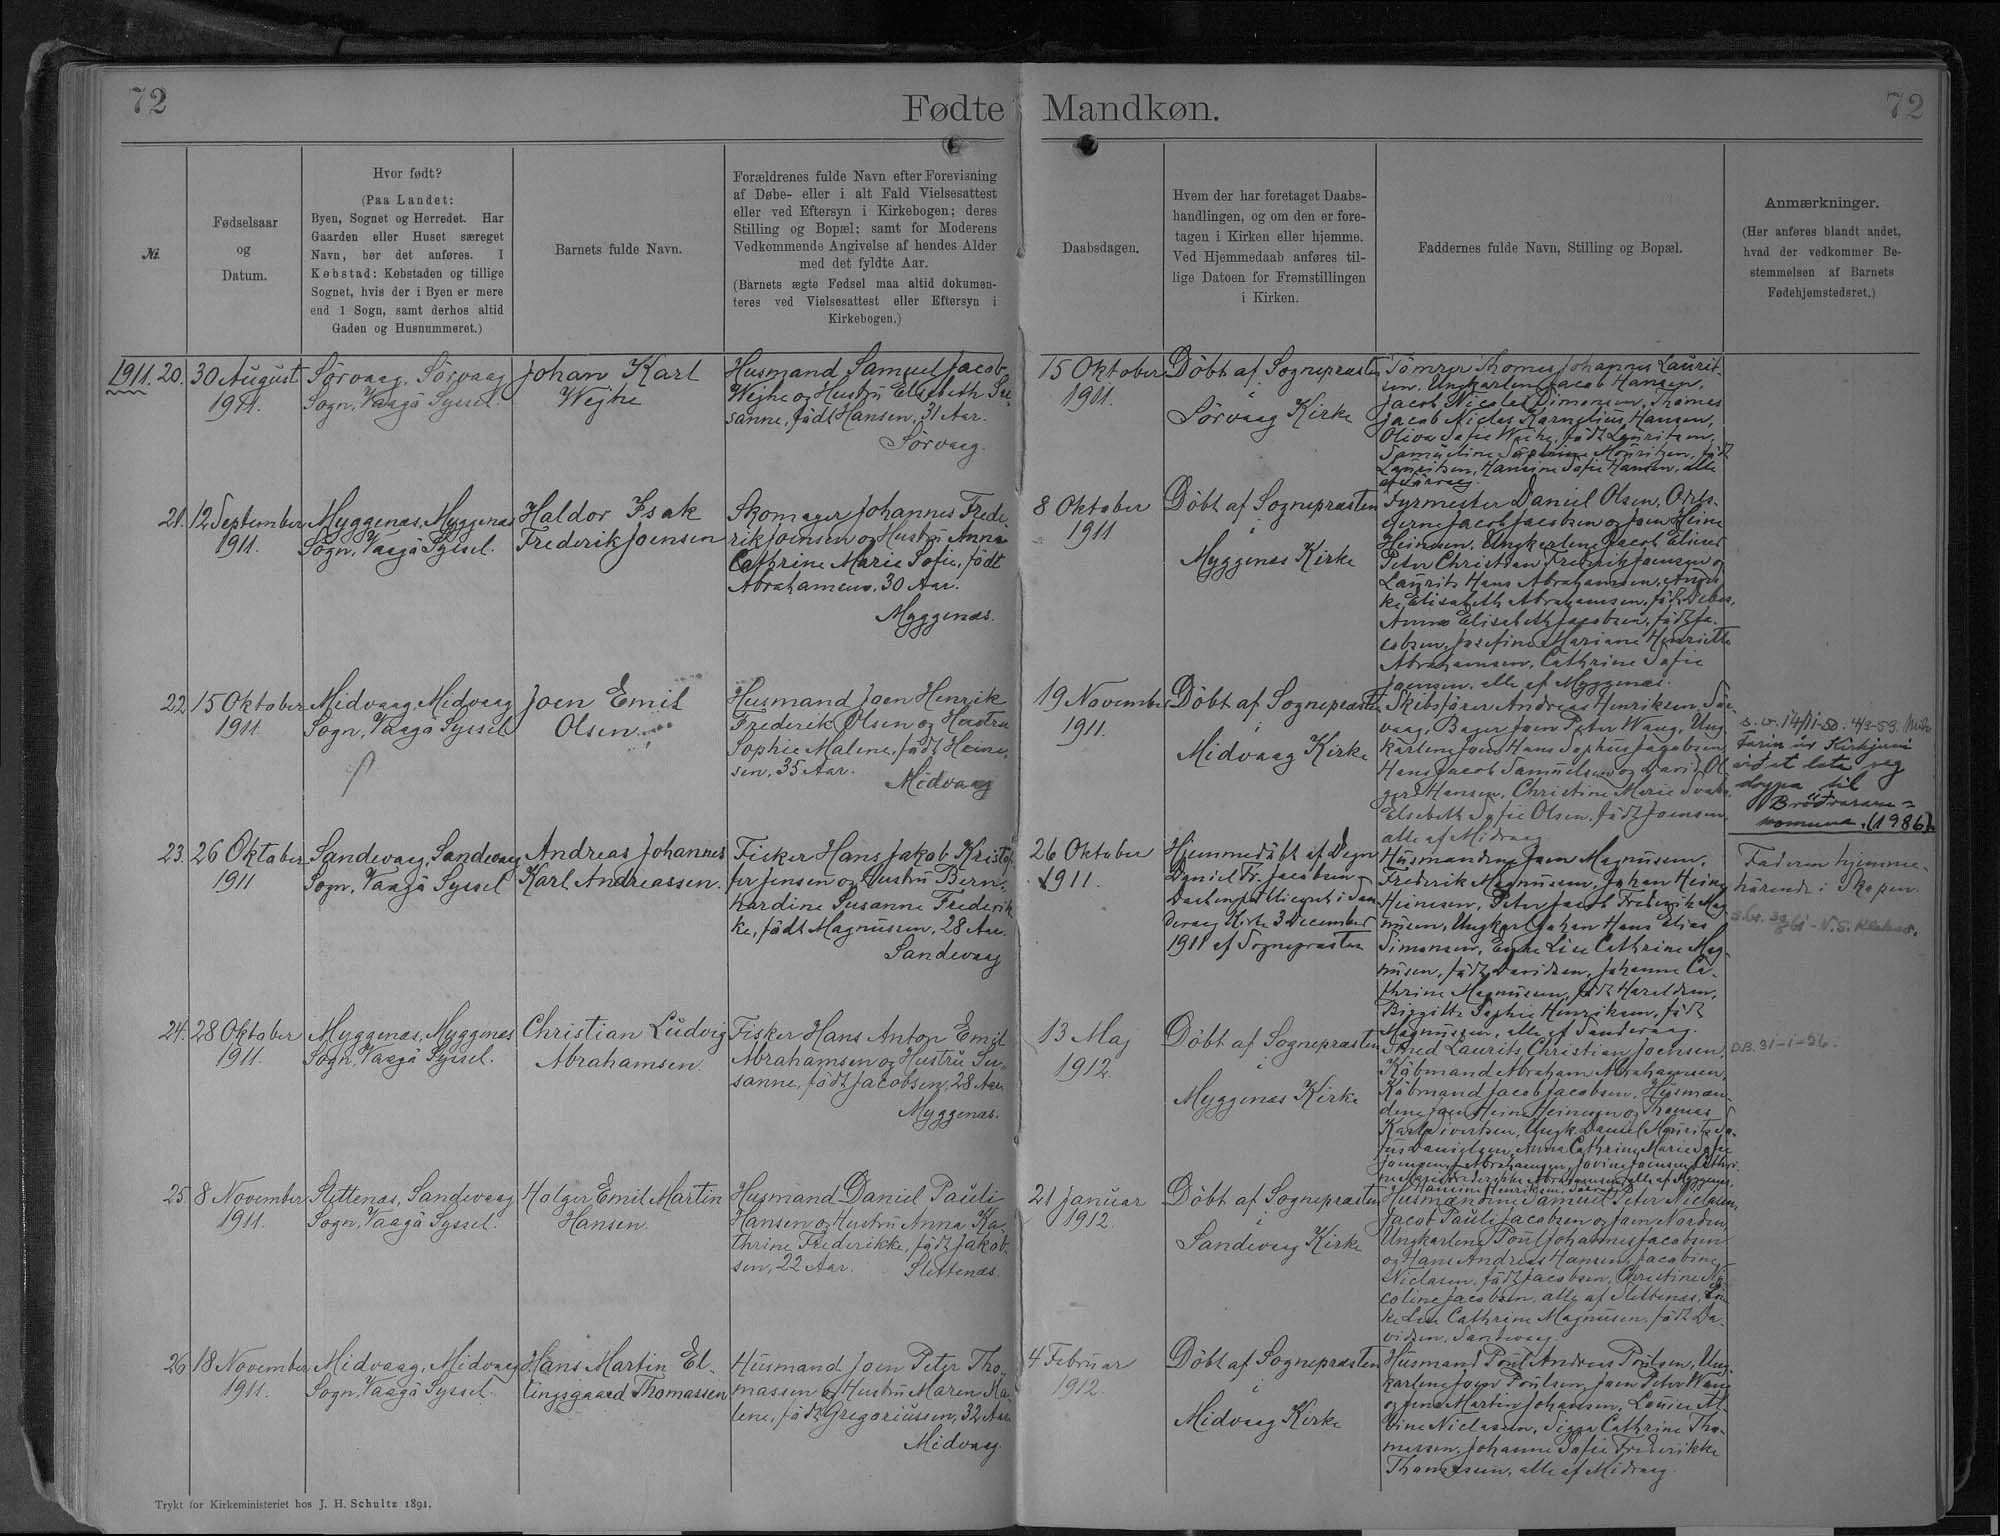 72
Fødte Mandkøn.
72
№
Fødselsaar
og
Datum.
Hvor født?
(Paa Landet:
Byen, Sognet og Herredet. Har
Gaarden eller Huset særeget
Navn, bør det anføres. I
Købstad: Købstaden og tillige
Sognet, hvis der i Byen er mere
end 1 Sogn, samt derhos altid
Gaden og Husnummeret.)
Barnets fulde Navn.
Forældrenes fulde Navn efter Forevisning
af Døbe- eller i alt Fald Vielsesattest
eller ved Eftersyn i Kirkebogen; deres
Stilling og Bopæl; samt for Moderens
Vedkommende Angivelse af hendes Alder
med det fyldte Aar.
(Barnets ægte Fødsel maa altid dokumen-
teres ved Vielsesattest eller Eftersyn i
Kirkebogen.)
Daabsdagen.
Hvem der har foretaget Daabs-
handlingen, og om den er fore-
tagen i Kirken eller hjemme.
Ved Hjemmedaab anføres til-
lige Datoen for Fremstillingen
i Kirken.
Faddernes fulde Navn, Stilling og Bopæl.
Anmærkninger.
(Her anføres blandt andet,
hvad der vedkommer Be-
stemmelsen af Barnets
Fødehjemstedsret.)
1911. 20.
30 August
1911.
Sörvaag, Sörvaag
Sogn, Vaagö Syssel.
Johan Karl
Wejhe
Husmand Samuel Jacob
Wejhe og Hustru Elsebeth Su-
sanne, födt Hansen, 31 Aar.
Sörvaag.
15 Oktober
1911.
Döbt af Sognepræsten
i
Sörvaag Kirke
Tömrer Thomas Johannes Laurit-
sen, Ungkarlene Jacob Hansen,
Jacob Nicolai Simonsen, Thomas
Jacob Niclas Kornelius Hansen,
Oliva Sofie Wejhe, födt Lauritsen,
Lauritsen, Hansine Sofie Hansen, alle
af Sörvaag.
21.
12 September
1911.
Myggenæs, Myggenæs
Sogn, Vaagö Syssel.
Haldor Isak
Frederik Joensen
Skomager Johannes Frede-
rik Joensen og Hustru Anna
Cathrine Marie Sofie, födt
Abrahamsen, 30 Aar.
Myggenæs.
8 Oktober
1911
Döbt af Sognepræsten
i
Myggenæs Kirke
Fyrmester Daniel Olsen,
Jacob Jacobsen og Joen Heine
Heinesen, Ungkarlene Jacob Elieser
Peter Christian Frederik Joensen og
Laurits Hans Abrahamsen,
Elisabeth Abrahamsen, födt
Anna Elisabeth Jacobsen, födt Ja-
cobsen, Josefine Mariane Henriette
Abrahamsen, Cathrine Sofie
Joensen, alle af Myggenæs.
22.
15 Oktober
1911.
Midvaag, Midvaag
Sogn, Vaagö Syssel
Joen Emil
Olsen.
Husmand Joen Henrik
Frederik Olsen og Hustru
Sophie Malene, födt Heine-
sen, 35 Aar.
Midvaag
19 November
1911.
Döbt af Sognepræsten
i
Midvaag Kirke
Skibsförer Andreas Henriksen, Sör-
vaag, Bager Joen Peter Waag, Ung-
karlene Joen Hans Sophus Jacobsen,
Hans Jacob Samuelsen og David
Hansen, Christine Marie
Elsebeth Sofie Olsen, födt Joensen,
alle af Midvaag.
farin úr Kirkjuni
við at lata seg
doypa til
Bröðrasam-
komuna. (1986).
23.
26 Oktober
1911
Sandevaag, Sandevaag
Sogn, Vaagö Syssel
Andreas Johannes
Karl Andreassen.
Fisker Hans Jakob Kristof-
fer Jensen og Hustru Bern-
hardine Susanne Frederik-
ke, födt Magnussen, 28 Aar.
Sandevaag
26 Oktober
1911.
Hjemmedöbt af Degn
Daniel Fr. Jacobsen
Daaben publiceret i San-
devaag Kirke 3 December
1911 af Sognepræsten
Husmændene Joen Magnussen,
Frederik Magnussen, Johan Heine
Heinesen, Peter Jacob Frederik Mag-
nussen, Ungkarl Johan Hans Elias
Simonsen, Enke Lise Cathrine Mag-
nussen, födt Davidsen, Johanne Ca-
thrine Magnussen, födt Haraldsen,
Birgitte Sophie Henriksen, födt
Magnussen, alle af Sandevaag.
Faderen hjemme-
hörende i Skopen.
24.
28 Oktober
1911.
Myggenæs, Myggenæs
Sogn, Vaagö Syssel.
Christian Ludvig
Abrahamsen
Fisker Hans Anton Emil
Abrahamsen og Hustru Su-
sanne, födt Jacobsen, 28 Aar
Myggenæs.
13 Maj
1912.
Döbt af Sognepræsten
i
Myggenæs Kirke
Laurits Christian Joensen,
Köbmand Abraham Abrahamsen,
Köbmand Jacob Jacobsen, Husmæn-
dene Joen Heine Heinesen og Thomas
Karl Sivertsen, Ungk. Daniel
Danielsen, Anna Cathrine Marie Sofie
Joensen, f. Abrahamsen,
D.B. 31-1-26.
25.
8 November
1911.
Slettenæs, Sandevaag
Sogn, Vaagö Syssel.
Holger Emil Martin
Hansen.
Husmand Daniel Pauli
Hansen og Hustru Anna Ka-
thrine Frederikke, födt Jakob-
sen, 22 Aar.
Slettenæs.
21 Januar
1912.
Döbt af Sognepræsten
i
Sandevaag Kirke
Husmændene Samuel Peter Niclasen,
Jacob Pauli Jacobsen og Joen
Ungkarlene Poul Johannes Jacobsen
og Hans Andreas Hansen, Jacobine
Niclasen, födt Jacobsen, Christine Ni-
coline Jacobsen, alle af Slettenæs, En-
ke Lise Cathrine Magnussen, födt Da-
vidsen, Sandevaag.
26.
18 November
1911.
Midvaag, Midvaag
Sogn, Vaagö Syssel.
Hans Martin El-
lingsgaard Thomassen
Husmand Joen Peter Tho-
massen og Hustru Maren Ma-
lene, födt Gregoriussen, 32 Aar
Midvaag.
4 Februar
1912.
Döbt af Sognepræsten
i
Midvaag Kirke
Husmand Poul Andreas Poulsen, Ung-
karlene Joen Poulsen, Joen Peter Waag
og Jens Martin Johansen, Louise Al-
bine Niclasen, Sigga Cathrine Tho-
massen, Johanne Sofie Frederikke
Thomassen, alle af Midvaag.
Trykt for Kirkeministeriet hos J. H. Schultz 1891.